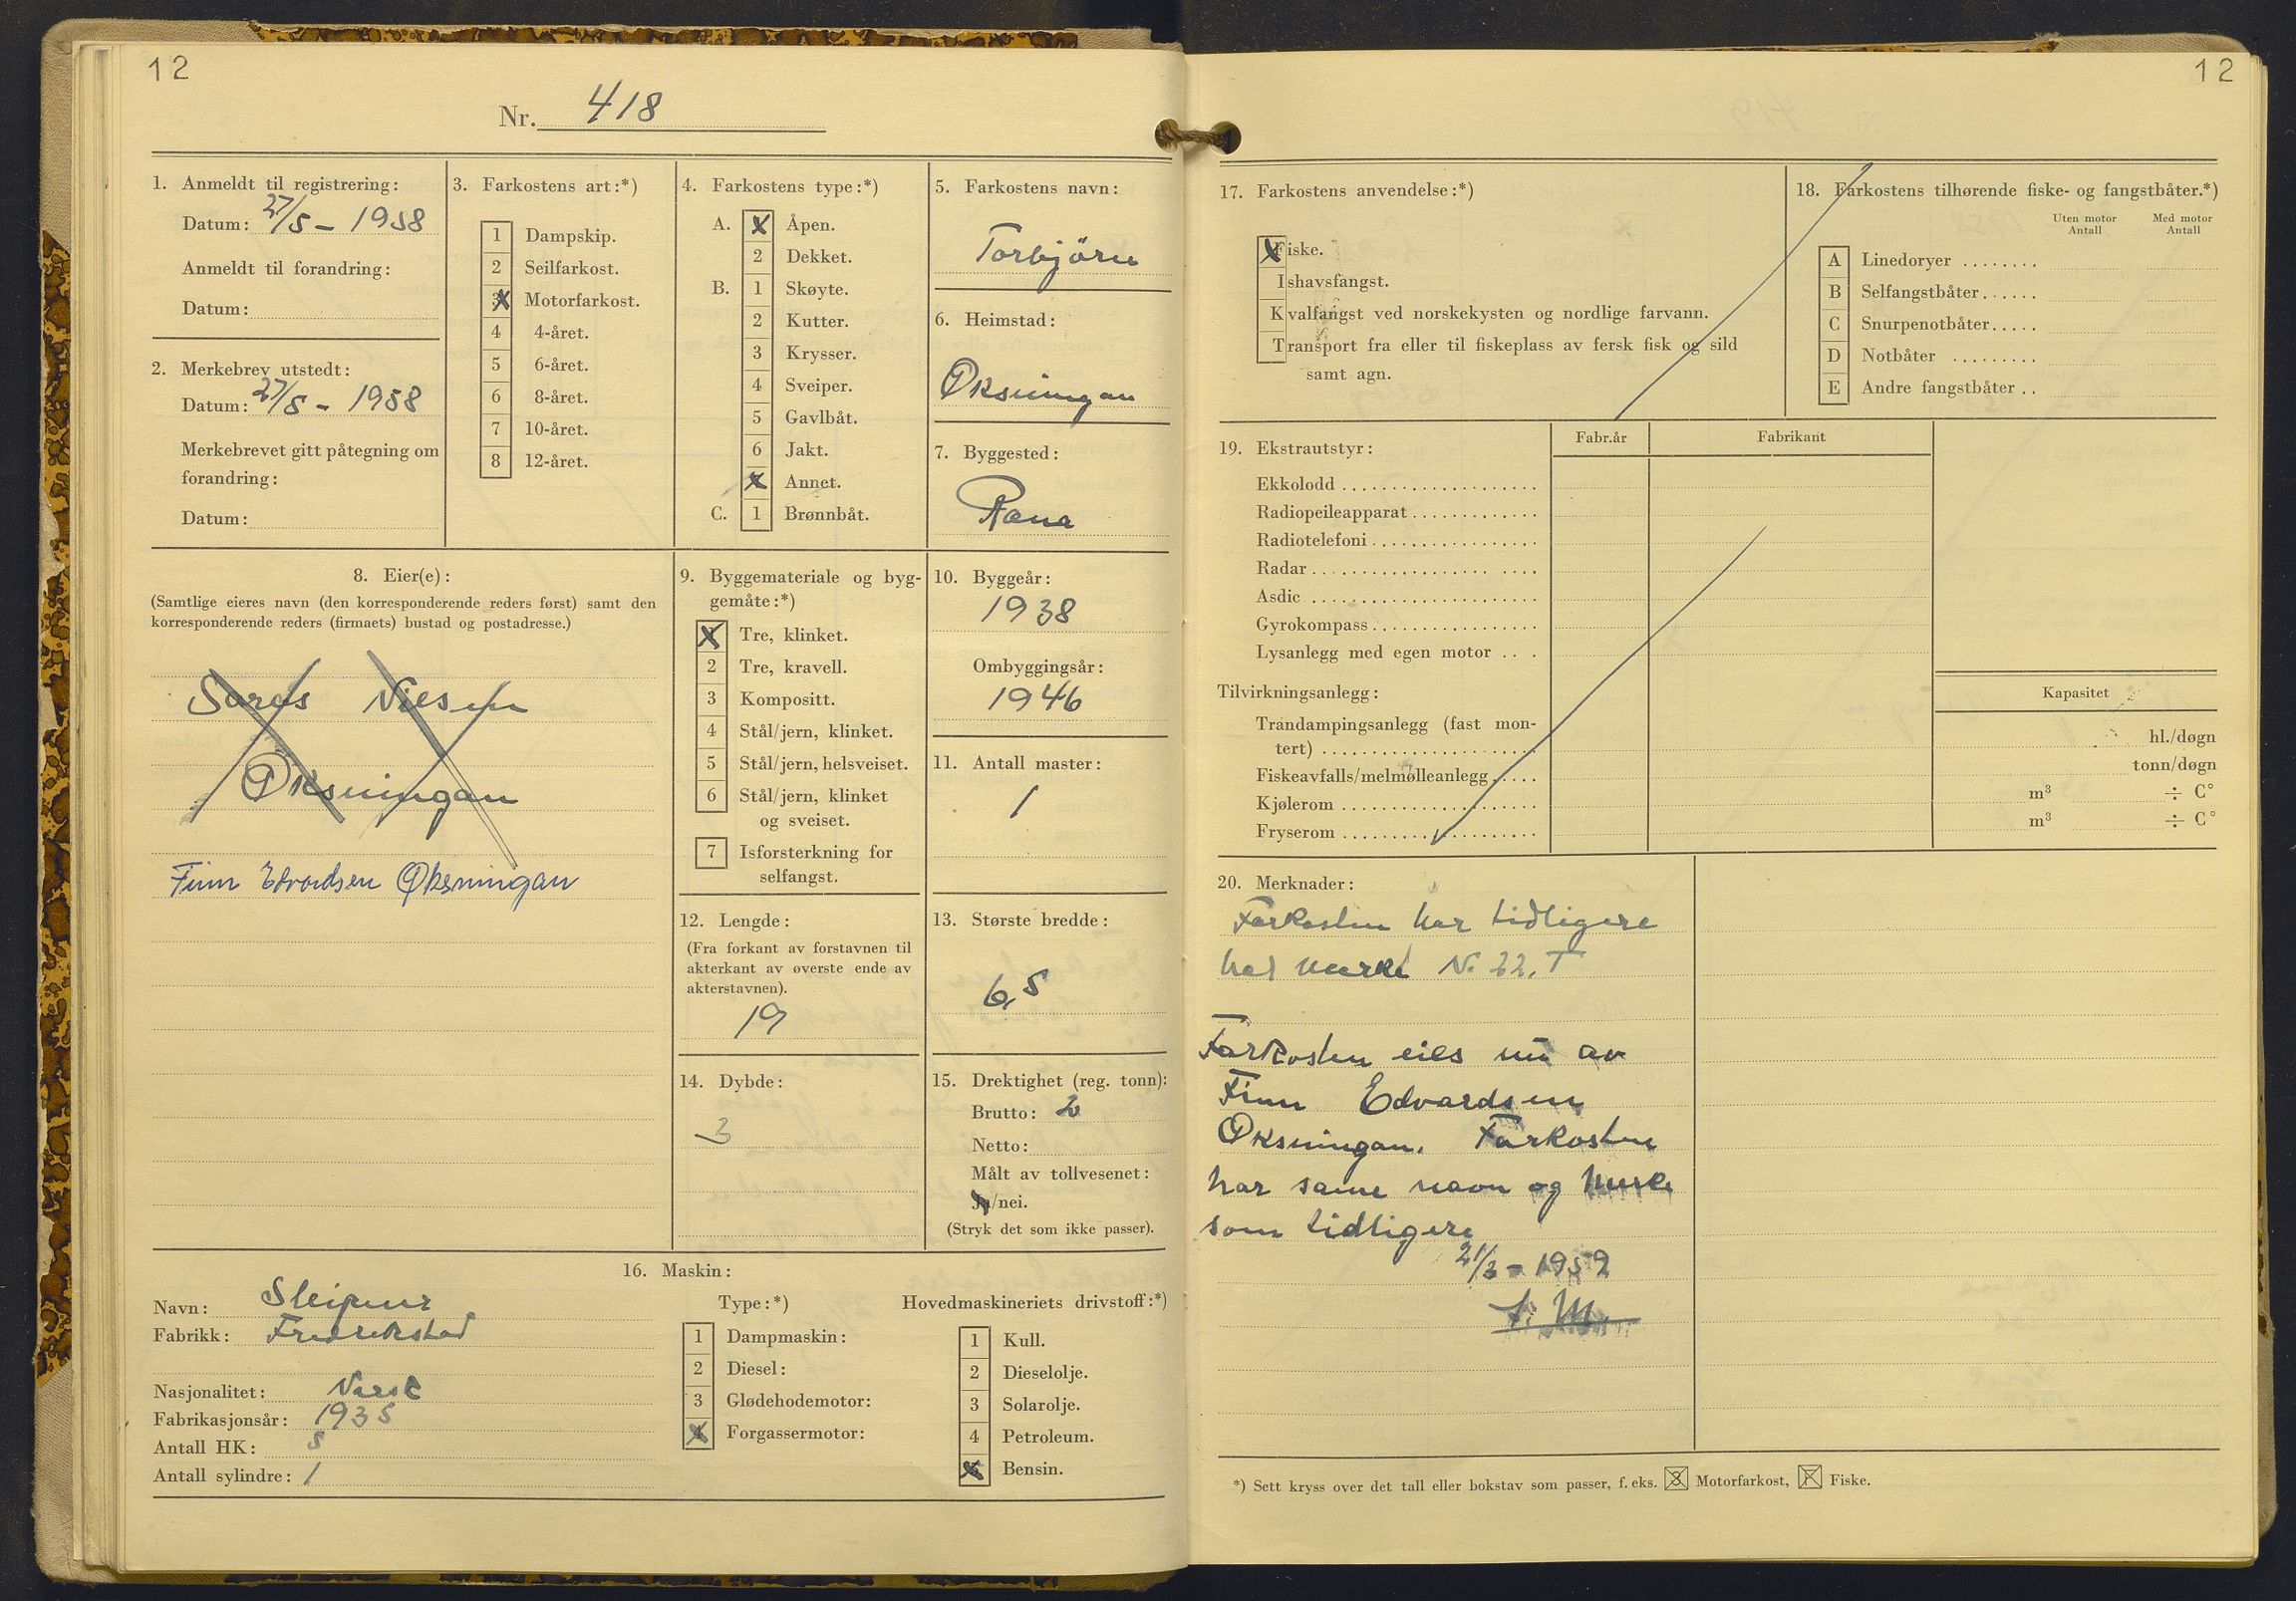 12
Nr. 418
1. Anmeldt til registrering:
Datum: 27/5 - 1958
Anmeldt til forandring:
Datum:
2. Merkebrev utstedt:
Datum: 27/5 - 1958
Merkebrevet gitt påtegning om
forandring:
Datum:
3. Farkostens art:*)
1 Dampskip.
2 Seilfarkost.
3 Motorfarkost.
4 4-året.
5 6-året.
6 8-året.
7 10-året.
8 12-året.
4. Farkostens type:*)
A. X Åpen.
2 Dekket.
B. 1 Skøyte.
2 Kutter.
3 Krysser.
4 Sveiper.
5 Gavlbåt.
6 Jakt.
X Annet.
C. 1 Brønnbåt.
5. Farkostens navn:
Torbjörn
6. Heimstad:
Øksningan
7. Byggested:
Rana
8. Eier(e):
(Samtlige eieres navn (den korresponderende reders først) samt den
korresponderende reders (firmaets) bustad og postadresse.)
Øksningan
Finn Edvardsen Øksningan
9. Byggemateriale og byg-
gemåte:*)
X Tre, klinket.
2 Tre, kravell.
3 Kompositt.
4 Stål/jern, klinket.
5 Stål/jern, helsveiset.
6 Stål/jern, klinket
og sveiset.
7 Isforsterkning for
selfangst.
10. Byggeår:
1938
Ombyggingsår:
1946
11. Antall master:
1
12. Lengde:
(Fra forkant av forstavnen til
akterkant av øverste ende av
akterstavnen).
19
13. Største bredde:
6,5
14. Dybde:
3
15. Drektighet (reg. tonn):
Brutto: 2
Netto:
Målt av tollvesenet:
Ja/nei.
(Stryk det som ikke passer).
16. Maskin:
Navn: Sleipner
Fabrikk: Fredrikstad
Nasjonalitet: Norsk
Fabrikasjonsår: 1935
Antall HK: 5
Antall sylindre: 1
Type:*)
1 Dampmaskin:
2 Diesel:
3 Glødehodemotor:
X Forgassermotor:
Hovedmaskineriets drivstoff:*)
1 Kull.
2 Dieselolje.
3 Solarolje.
4 Petroleum.
X Bensin.
12
17. Farkostens anvendelse:*)
Fiske.
Ishavsfangst.
Kvalfangst ved norskekysten og nordlige farvann.
Transport fra eller til fiskeplass av fersk fisk og sild
samt agn.
18. Farkostens tilhørende fiske- og fangstbåter.*)
Uten motor Antall Med motor Antall
A Linedoryer
B Selfangstbåter
C Snurpenotbåter
D Notbåter
E Andre fangstbåter
19. Ekstrautstyr: Fabr.år Fabrikant
Ekkolodd
Radiopeileapparat
Radiotelefoni
Radar
Asdic
Gyrokompass
Lysanlegg med egen motor
Tilvirkningsanlegg: Kapasitet
Trandampingsanlegg (fast mon-
tert) hl./døgn
Fiskeavfalls/melmølleanlegg tonn/døgn
Kjølerom m³ ÷ C°
Fryserom m³ ÷ C°
20. Merknader:
Farkosten har tidligere
hat merke N. 22. T
Farkosten eies nu av
Finn Edvardsen
Øksningan. Farkosten
har same navn og merke
som tidligere
21/3 - 1959
*) Sett kryss over det tall eller bokstav som passer, f. eks. 3 Motorfarkost, F Fiske.